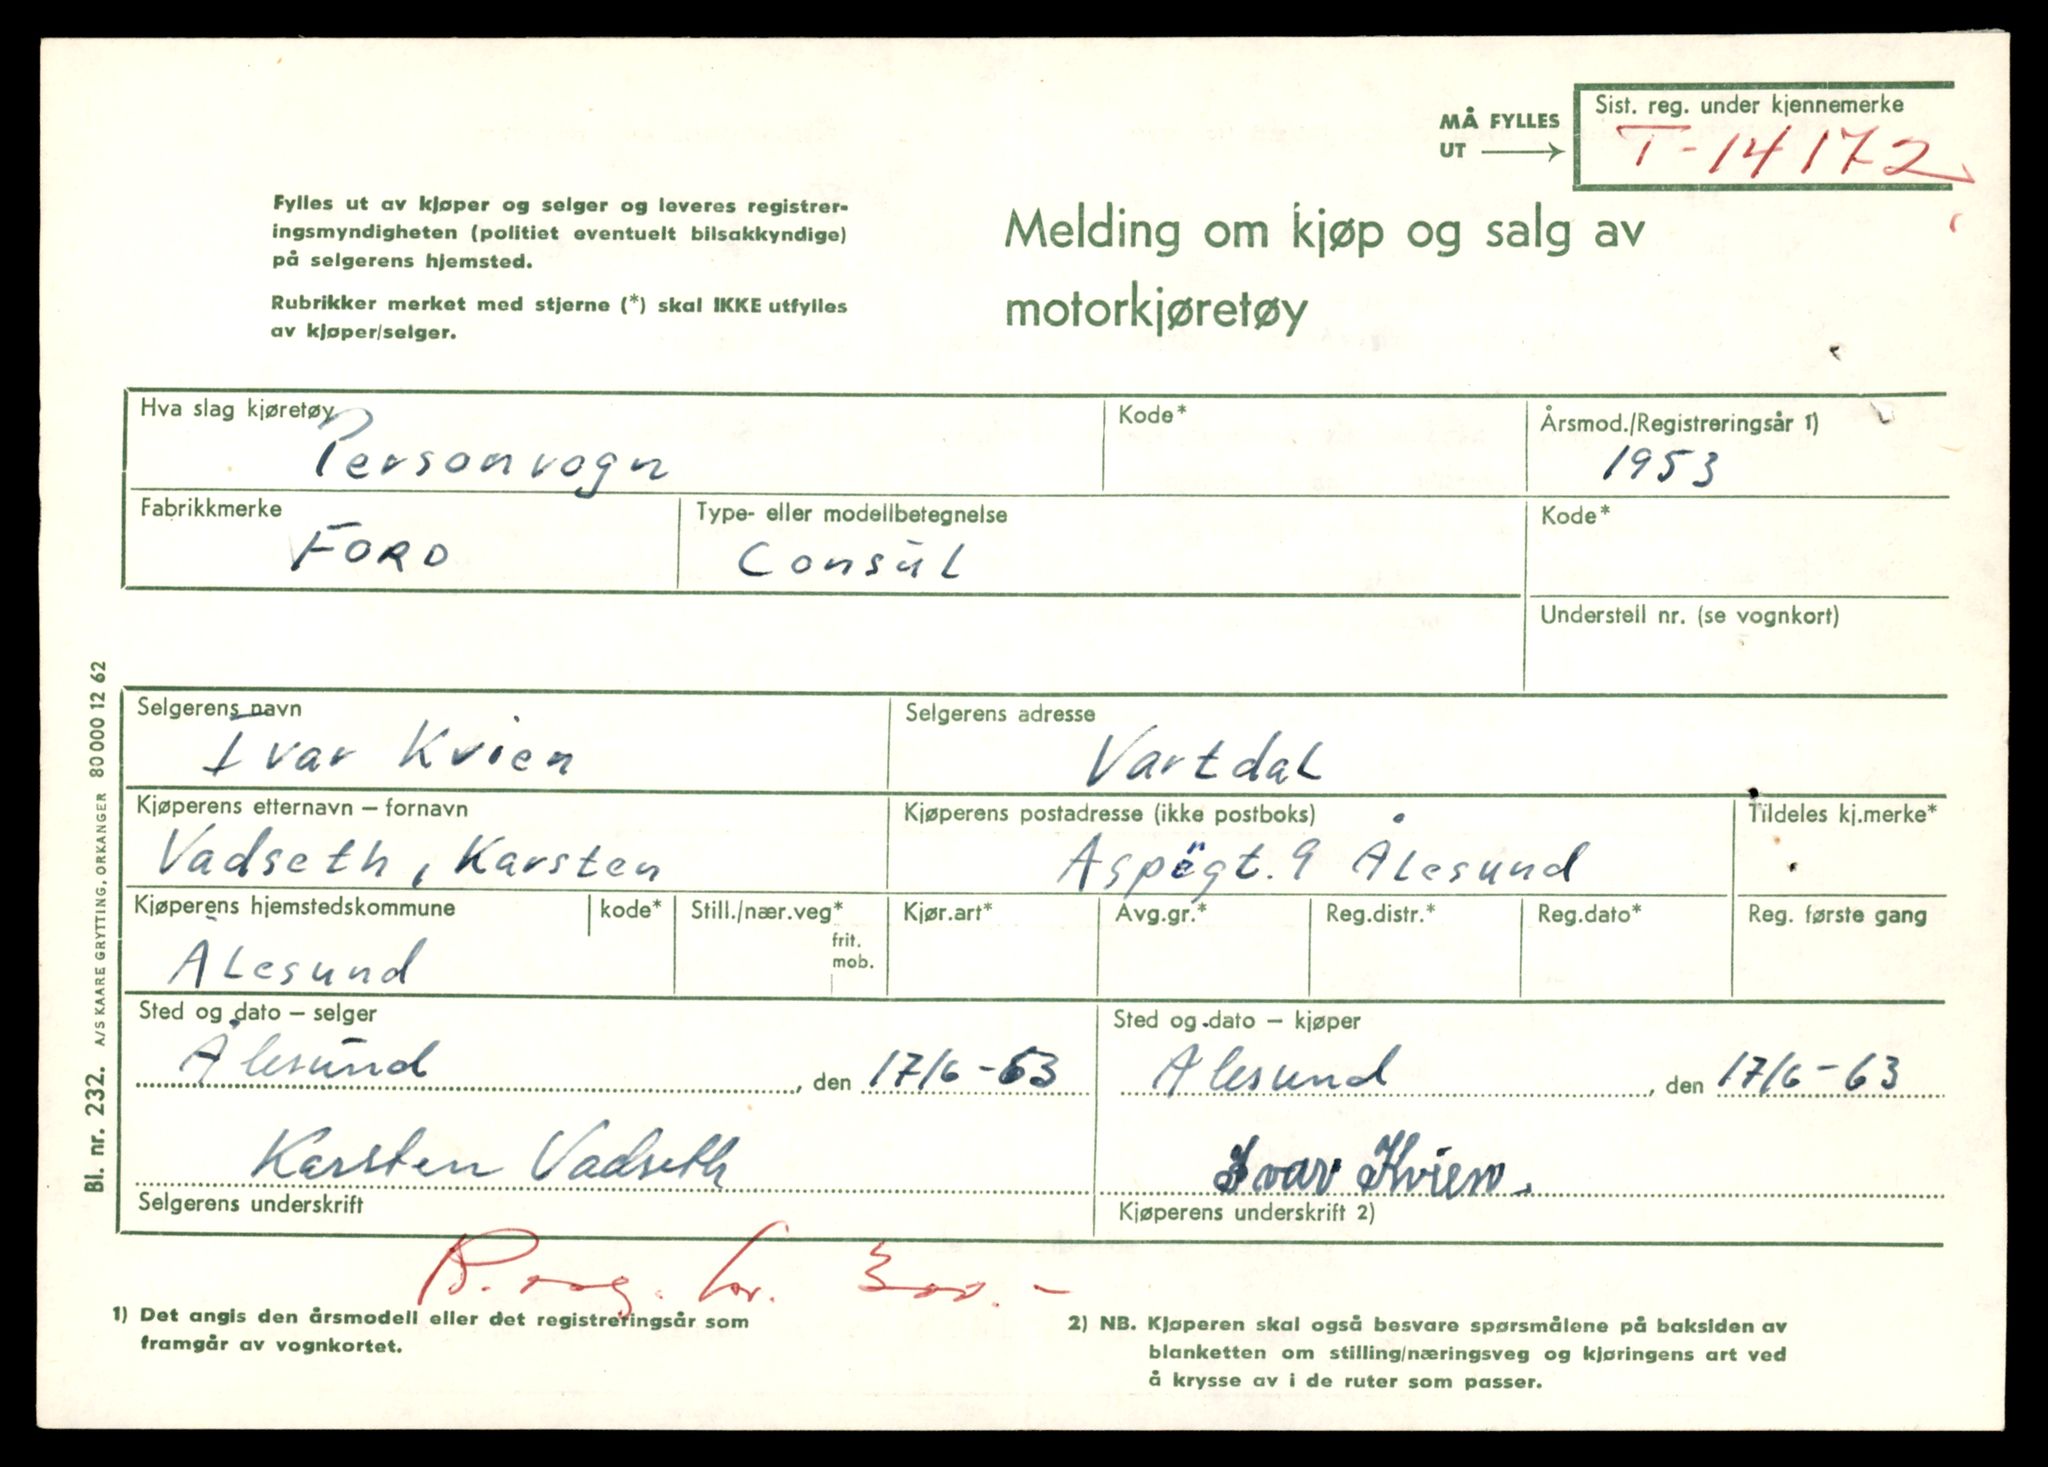 MÅ FYLLES
UT
Sist. reg. under kjennemerke
T-14172
Fylles ut av kjøper og selger og leveres registrer-
ingsmyndigheten (politiet eventuelt bilsakkyndige)
på selgerens hjemsted.
Rubrikker merket med stjerne (*) skal IKKE utfylles
av kjøper/selger.
Melding om kjøp og salg av
motorkjøretøy
Hva slag kjøretøy
Personvogn
Kode*
Årsmod./Registreringsår 1)
1953
Fabrikkmerke
FORD
Type- eller modellbetegnelse
Consul
Kode*
Understell nr. (se vognkort)
Selgerens navn
Ivar Kvien
Selgerens adresse
Vartdal
Kjøperens etternavn – fornavn
Vadseth, Karsten
Kjøperens postadresse (ikke postboks)
9 Ålesund
Tildeles kj.merke*
Kjøperens hjemstedskommune
Ålesund
kode*
Still./nær.veg*
frit.
mob.
Kjør.art*
Avg.gr.*
Reg.distr.*
Reg.dato*
Reg. første gang
Sted og dato – selger
Ålesund, den 17/6-63
Sted og dato – kjøper
Ålesund, den 17/6-63
Karsten Vadseth
Selgerens underskrift
Ivar Kvien.
Kjøperens underskrift 2)
1) Det angis den årsmodell eller det registreringsår som
framgår av vognkortet.
2) NB. Kjøperen skal også besvare spørsmålene på baksiden av
blanketten om stilling/næringsveg og kjøringens art ved
å krysse av i de ruter som passer.
Bl. nr. 232. A/S KAARE GRYTTING, ORKANGER 80 000 12 62